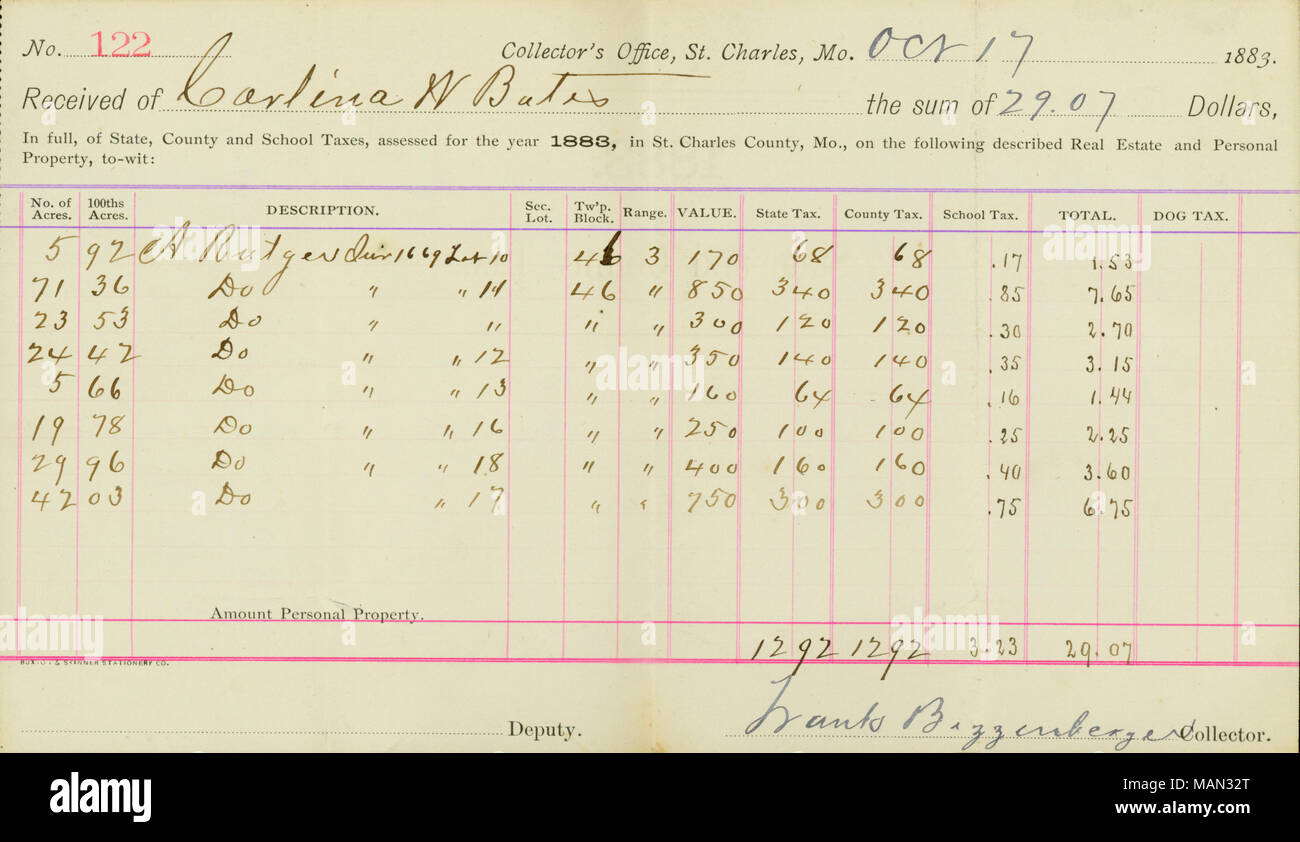 No. 122 Collector's Office, St. Charles, Mo. Oct 17 1883.
Received of Carlina W Bates the sum of 29.07 Dollars,
In full, of State, County and School Taxes, assessed for the year 1883, in St. Charles County, Mo., on the following described Real Estate and Personal
Property, to-wit:
No. of Acres. 100ths Acres. DESCRIPTION. Sec. Lot. Tw'p. Block. Range. VALUE. State Tax. County Tax. School Tax. TOTAL. DOG TAX.
5 92 A Rutger Sur 1669 Lot 10 46 3 170 68 68 .17 1.53
71 36 Do " " 11 46 " 850 340 340 .85 7.65
23 53 Do " " " " 300 120 120 .30 2.70
24 42 Do " " 12 " " 350 140 140 .35 3.15
5 66 Do " " 13 " " 160 64 64 .16 1.44
19 78 Do " " 16 " " 250 100 100 .25 2.25
29 96 Do " " 18 " " 400 160 160 .40 3.60
42 03 Do " 17 " " 750 300 300 .75 6.75
Amount Personal Property.
1292 1292 3.23 29.07
BUXTON & SKINNER STATIONERY CO.
Deputy. Frank Bezzenberger Collector.
alamy
Image ID: MAN32T
www.alamy.com